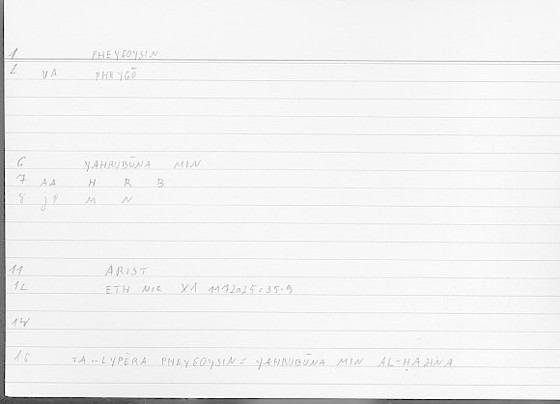 1 PHEYGOYSIN
2 VA PHEYGŌ
6 YAHRUBŪNA MIN
7 AA H R B
8 JP M N
11 ARIST
12 ETH NIC
14
16 TA -- LYPĒRA PHEYGOYSIN = YAHRUBŪNA MIN AL-ḤAZINA